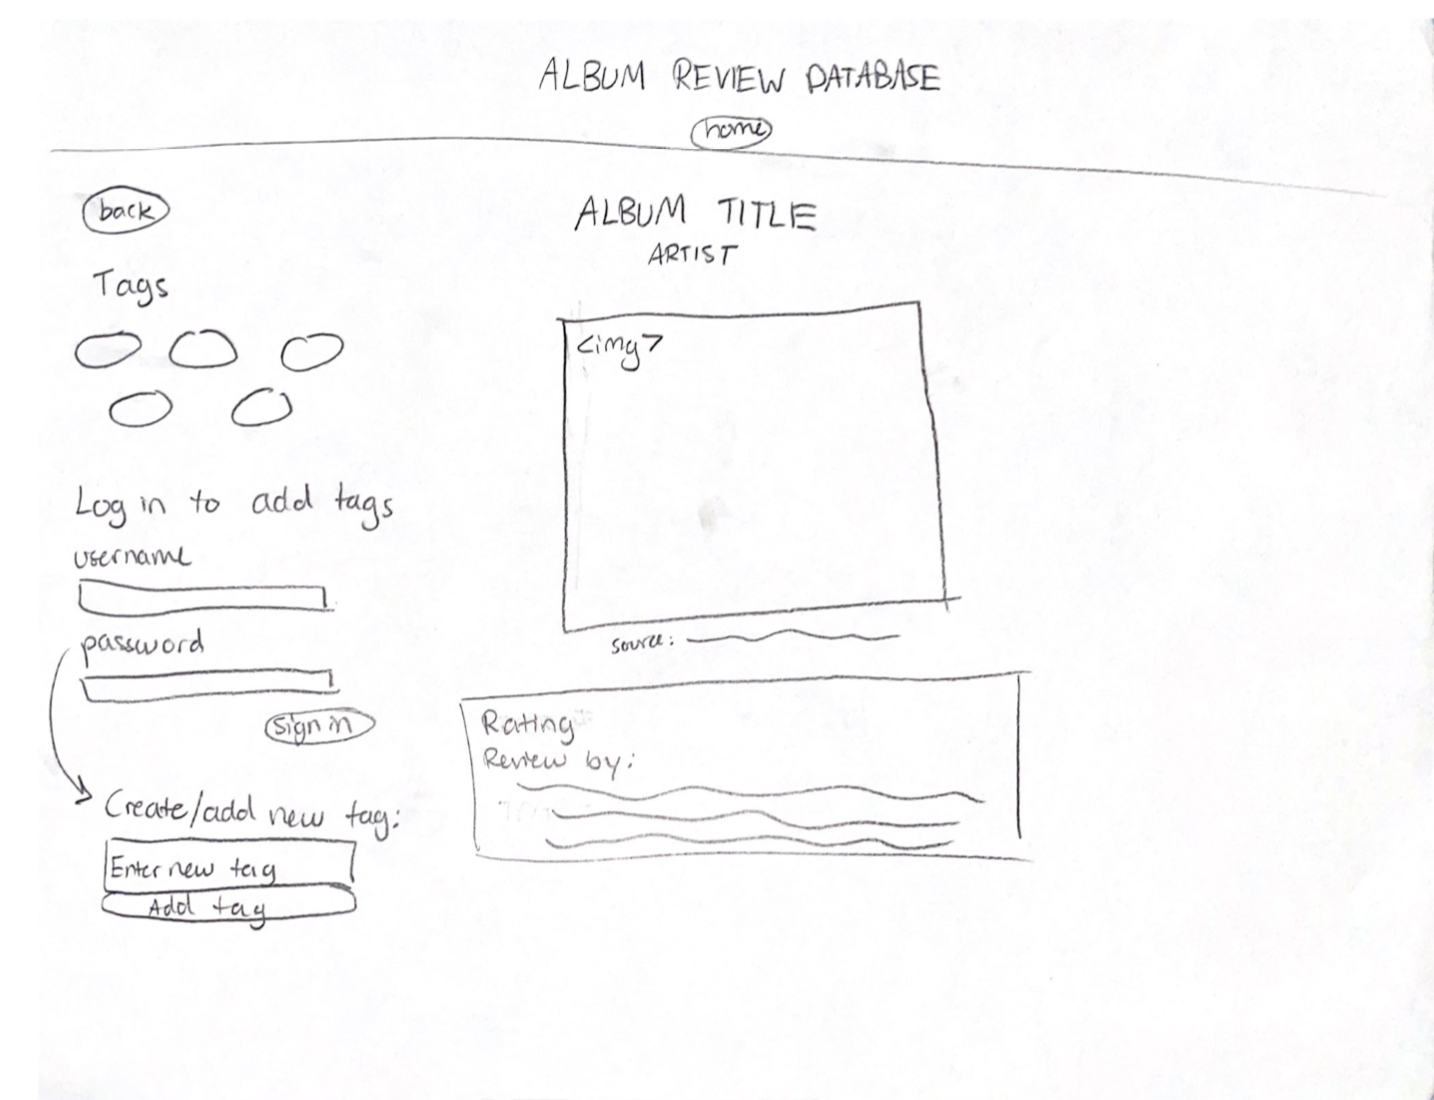 ALBUM REVIEW DATABASE
home
back
Tags
Log in to add tags
username
password
Sign in
Create/add new tag:
Enter new tag
Add tag
ALBUM TITLE
ARTIST
<img>
source:
Rating
Review by: